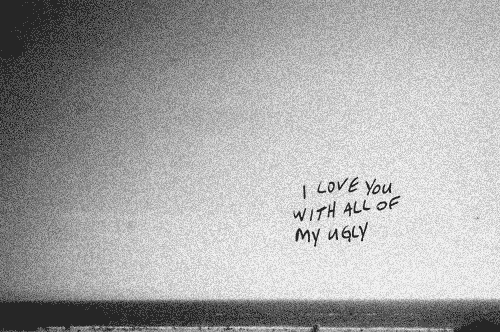 I LOVE YOU
WITH ALL OF
MY UGLY